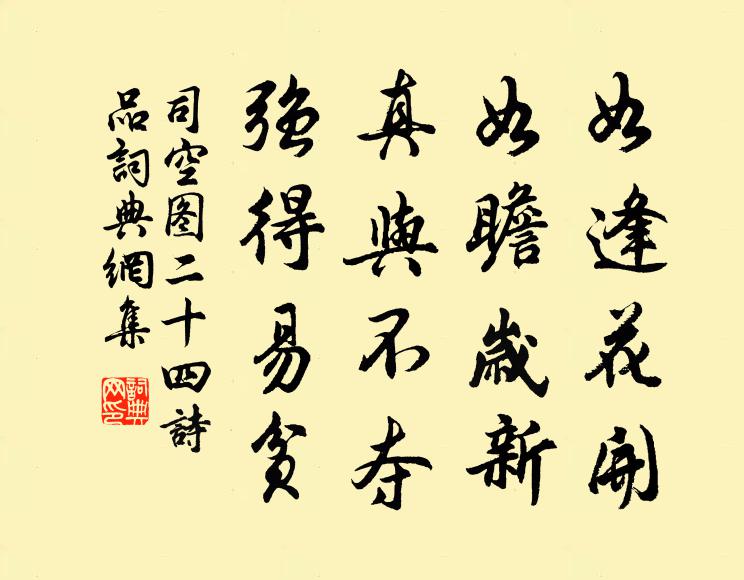 如逢花開
如瞻歲新
真與不夺
強得易貧
司空图二十四詩
品詞典網集
詞典
网印